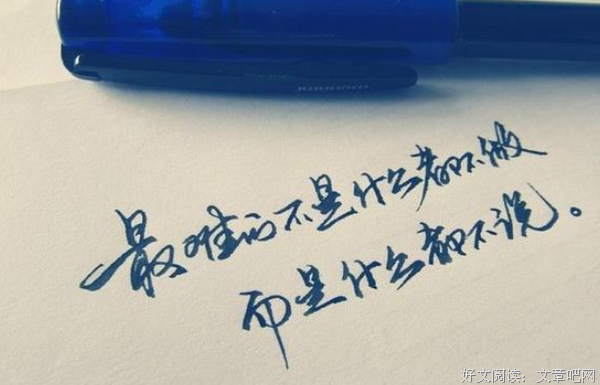 最难的不是什么都不做
而是什么都不说。
好文阅读：文章吧网